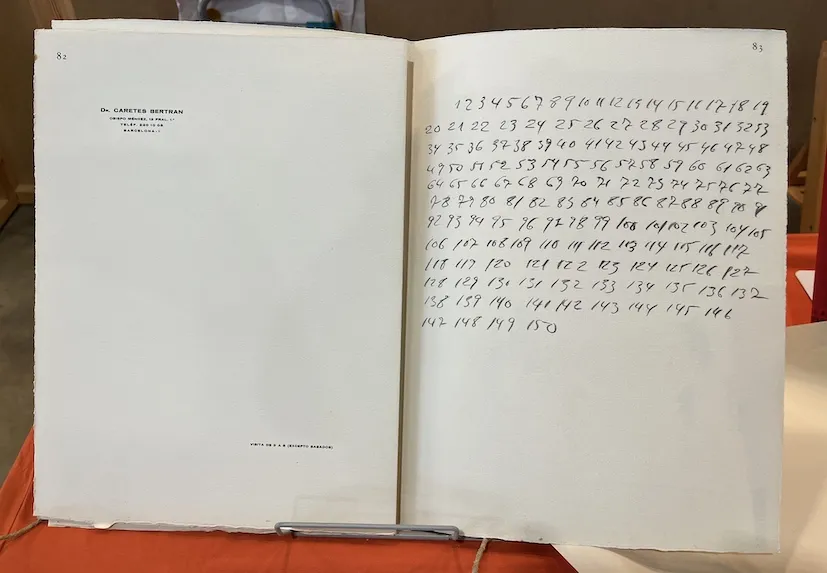 82
Dr. CARETES BERTRAN
OBISPO MENDEZ, 19 PRAL. 1ª
TELÉF. 230 10 08
BARCELONA-1
VISITA DE 3 A 6 (EXCEPTO SABADOS)
83
1 2 3 4 5 6 7 8 9 10 11 12 13 14 15 16 17 18 19
20 21 22 23 24 25 26 27 28 29 30 31 32 33
34 35 36 37 38 39 40 41 42 43 44 45 46 47 48
49 50 51 52 53 54 55 56 57 58 59 60 61 62 63
64 65 66 67 68 69 70 71 72 73 74 75 76 77
78 79 80 81 82 83 84 85 86 87 88 89 90 91
92 93 94 95 96 97 98 99 100 101 102 103 104 105
106 107 108 109 110 111 112 113 114 115 116 117
118 119 120 121 122 123 124 125 126 127
128 129 130 131 132 133 134 135 136 137
138 139 140 141 142 143 144 145 146
147 148 149 150